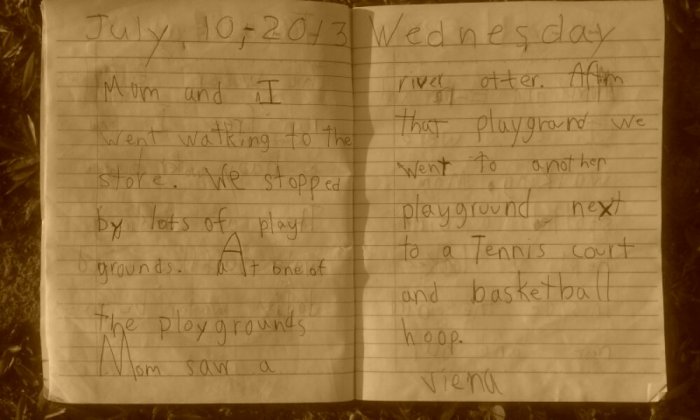 July, 10, -2013 Wednesday
Mom and I
went walking to the
store. We stopped
by lots of play
grounds. At one of
the playgrounds
Mom saw a
river otter. Aftm
that playground we
went to another
playground next
to a Tennis court
and basketball
hoop.
Viena